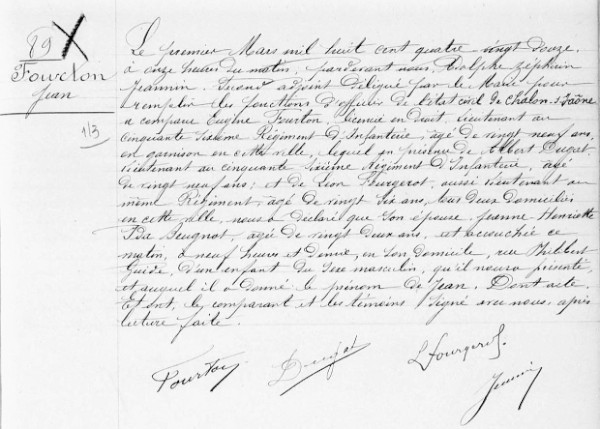 89
Fourton
Jean
1/3
Le premier Mars mil huit cent quatre vingt douze,
à onze heures du matin, pardevant nous, Adolphe Zéphirin
Jeannin, Second adjoint délégué par le Maire pour
remplir les fonctions d'officier de l'état civil de Chalon s/ Saône
a comparu Eugène Fourton, licencié en droit, lieutenant au
cinquante sixième Régiment d'Infanterie, âgé de vingt neuf ans,
en garnison en cette ville, lequel en présence de Albert Dugat
lieutenant au cinquante sixième Régiment d'Infanterie, âgé
de vingt neuf ans; et de Léon Fourgerot, aussi lieutenant au
même Régiment, âgé de vingt six ans, tous deux domiciliés
en cette ville, nous a déclaré que son épouse Jeanne Henriette
Ida Beugnot, âgée de vingt deux ans, est accouchée ce
matin, à neuf heures et demie, en son domicile, rue Philibert
Guide, d'un enfant du sexe masculin, qu'il nous a présenté,
et auquel il a donné le prénom de Jean. Dont acte.
Et ont, le comparant et les témoins signé avec nous, après
lecture faite.
Fourton
L Fourgerot
Jeannin